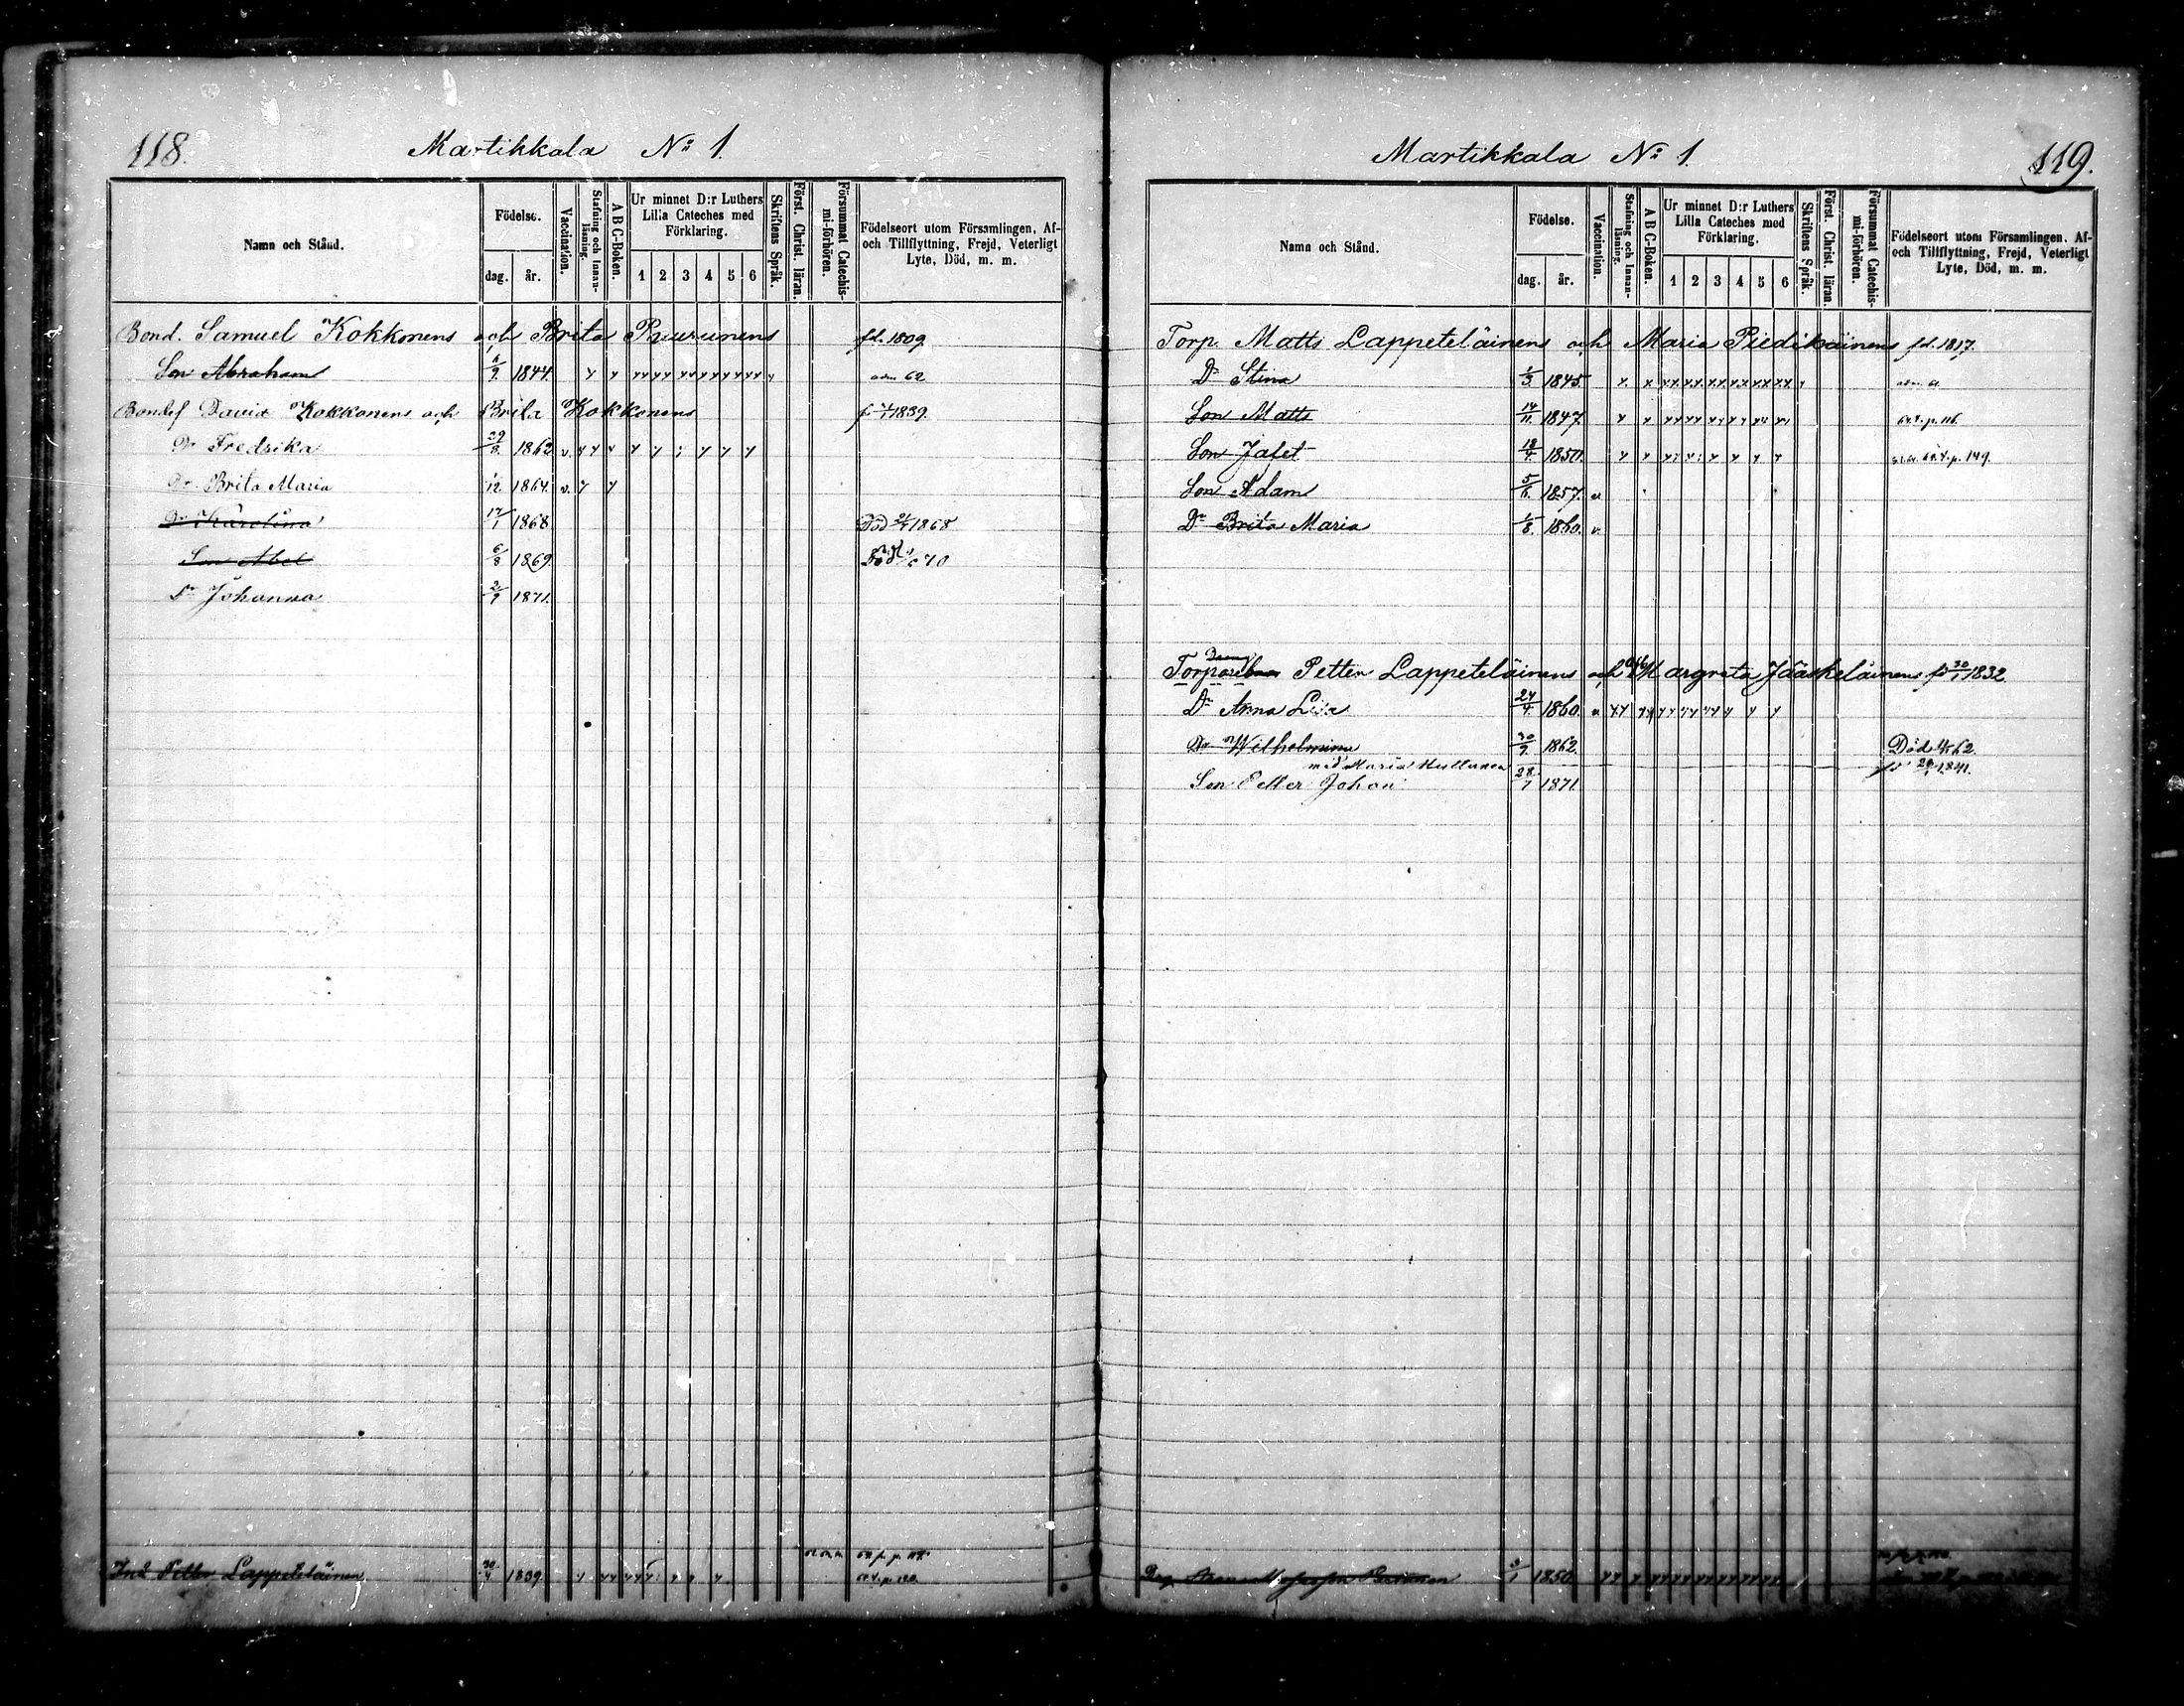 118.
Martikkala No 1.
Namn och Stånd.
Födelse.
dag. år.
Vaccination.
Stafning och Innan-läsning.
A B C-Boken.
Ur minnet D:r Luthers
Lilla Cateches med
Förklaring.
1 2 3 4 5 6
Skriftens Språk.
Först. Christ. läran.
Försummat Catechis-mi-förhören.
Födelseort utom Församlingen, Af-
och Tillflyttning, Frejd, Veterligt
Lyte, Död, m. m.
Bond. Samuel Kokkonens och Brita Puurunens fd. 1809
Son Abraham 1844. adm 62
Bondes. David Kokkonens och Brita Kokkonens 1839.
Dr Fredrika 29/8 1862 v.
Dr Brita Maria 1864. v.
Dr Karolina 17/1 1868 Död 1868
Son Abel 6/8 1869. Död 70
Dr Johanna 2/9 1871.
Inh Petter Lappeteläinen 30/4 1839
Martikkala No 1.
119.
Namn och Stånd.
Födelse.
dag. år.
Vaccination.
Stafning och Innan-läsning.
A B C-Boken.
Ur minnet D:r Luthers
Lilla Cateches med
Förklaring.
1 2 3 4 5 6
Skriftens Språk.
Först. Christ. läran.
Försummat Catechis-mi-förhören.
Födelseort utom Församlingen, Af-
och Tillflyttning, Frejd, Veterligt
Lyte, Död, m. m.
Torp. Matts Lappeteläinens och Maria Piedikäinens fd. 1817.
Dr Stina 1/3 1845.
Son Matts 14/11 1847. p. 116.
Son Jafet 18/4 1850. p. 149.
Son Adam 5/6 1857. v
Dr Brita Maria 1/8 1860. v.
Petter Lappeteläinens och Margreta Jääskeläinens fd 30/1 1832
Dr Anna Lisa 24/4 1860. v
Dr Wilhelmina 30/9 1862. Död 62
med Maria Hullunen 1841.
Son Petter Johan 28/7 1871
1850.